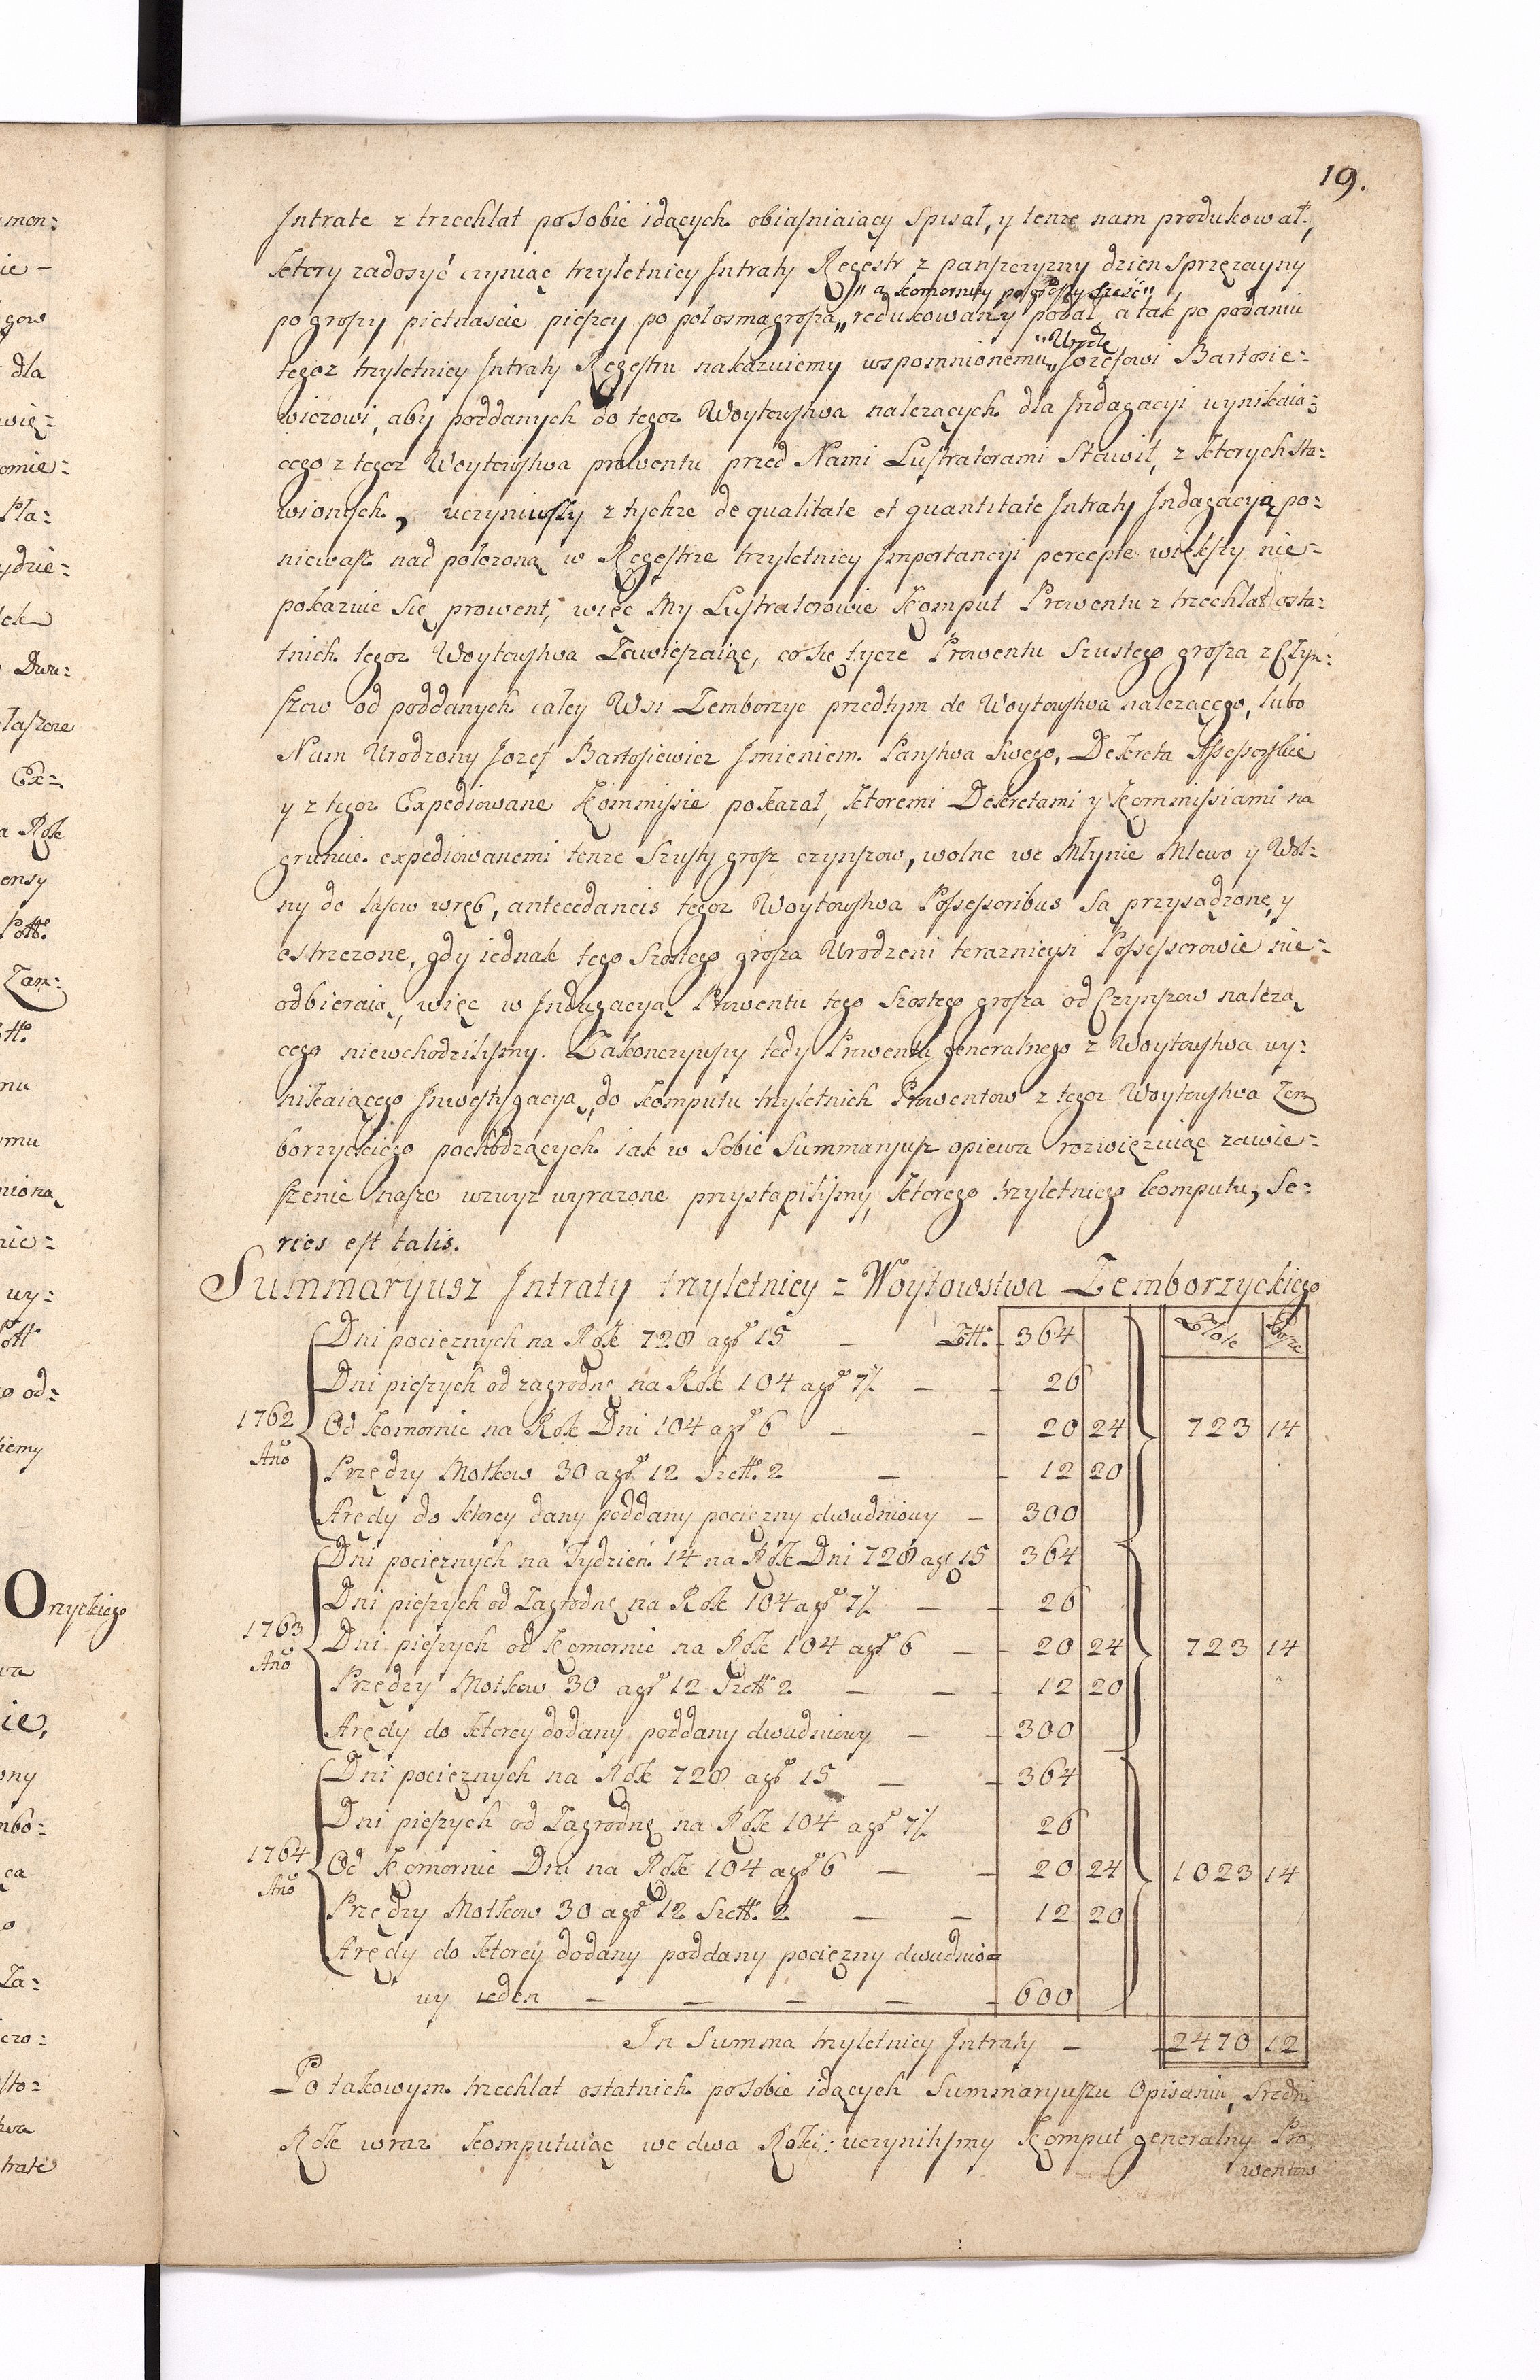 19.
Jntrate z trzechlat posobie idących obiaśniaiący spisał, y tenże nam produkował,
ktory zadosyć czyniąc trzyletniey Jntraty Regestr z panszczyzny dzien sprzęzayny
" a komornicy po groszy sześć "
po groszy pietnascie pieszey po polosmagrosza „ redukowany podał, a tak po podaniu
"Urodz
tegoz trzyletniey Jntraty Regestru nakazuiemy wspomnionemu „ Jozefowi Bartosie=
wiczowi, aby poddanych do tegoz Woytowstwa nalezących dla Jndagacyi wynikaią=
cego z tegoz Woytowstwa prowentu przed Nami Lustratorami Stawił, z ktorych sta=
wionych, uczyniwszy z tychze de qualitate et quantitate Jntraty Jndagacyją po=
niewasz nad polozoną w Regestrze trzyletniey Jmportancyi percepte większy nie=
pokazuie się prowent, więc My Lustratorowie Komput Prowentu z trzechlat osta=
tnich tegoz Woytowstwa Zawieszaiąc, co się tycze Prowentu Szustego grosza z Czyn=
szow od poddanych całey Wsi Zemborzyc przedtym do Woytowstwa nalezącego, lubo
Nam Urodzony Jozef Bartosiewicz Jmieniem Panstwa Swego, Dekreta Assessorskie
y z tegoz Expediowane Kommissie pokazał, ktoremi Dekretami y Kommissiami na
gruncie expediowanemi tenze Szusty grosz czynszow, wolne we Młynie Mlewo y Wol=
ny do lasow wręb, antecedaneis tegoz Woytowstwa Possessoribus są przysądzone, y
ostrzezone, gdy iednak tego Szostego grosza Urodzeni teraznieysi Possessorowie nie=
odbieraią, więc w Jndagacyją Prowentu tego Szostego grosza od Czynszow nalezą
cego niewchodzilismy. Zakonczywszy tedy Prowentu generalnego z Woytowstwa wy=
nikaiącego Jnwestygacyją, do komputu trzyletnich Prowentow z tegoz Woytowstwa Zem
borzyckiego pochodzących iak w Sobie Summaryusz opiewa rozwięzuiąc zawie=
szenie nasze wzwyz wyrazone przystąpilismy, ktorego trzyletniego komputu, Se=
ries est talis.
Summaryusz Jntraty trzyletniey z Woytowstwa Zemborzyckiego
Złote Grosze
Dni pociężnych na Rok 728 a gr 15 – Złł. 364
Dni pieszych od zagrodnę na Rok 104 a gr 7½ – 26
1762 Od komornic na Rok Dni 104 a gr 6 – 20 24 723 14
Año Przędzy Motkow 30 a gr 12 Szett. 2 – 12 20
Arędy do ktorey dany poddany pocięzny dwudniowy – 300
Dni pociężnych na Tydzień 14 na Rok Dni 728 a gr 15 364
Dni pieszych od Zagrodnę na Rok 104 a gr 7½ – 26
1763 Dni pieszych od Komornic na Rok 104 a gr 6 – 20 24 723 14
Año Przędzy Motkow 30 a gr 12 Szett. 2 – – 12 20
Arędy do ktorey dodany poddany dwudniowy – 300
Dni pociężnych na Rok 728 a gr 15 – 364
Dni pieszych od Zagrodnę na Rok 104 a gr 7½ 26
1764 Od Komornic Dni na Rok 104 a gr 6 – 20 24 1023 14
Año Przędzy Motkow 30 a gr 12 Szett. 2 – – 12 20
Arędy do ktorey dodany poddany pocięzny dwudnio=
wy ieden – – – – 600
Jn Summa trzyletniey Jntraty – 2470 12
Po takowym trzechlat ostatnich posobie idących Summaryuszu Opisaniu, Sredni
Rok wraz komputuiąc we dwa Roki: uczynilismy Komput generalny Pro
wentow